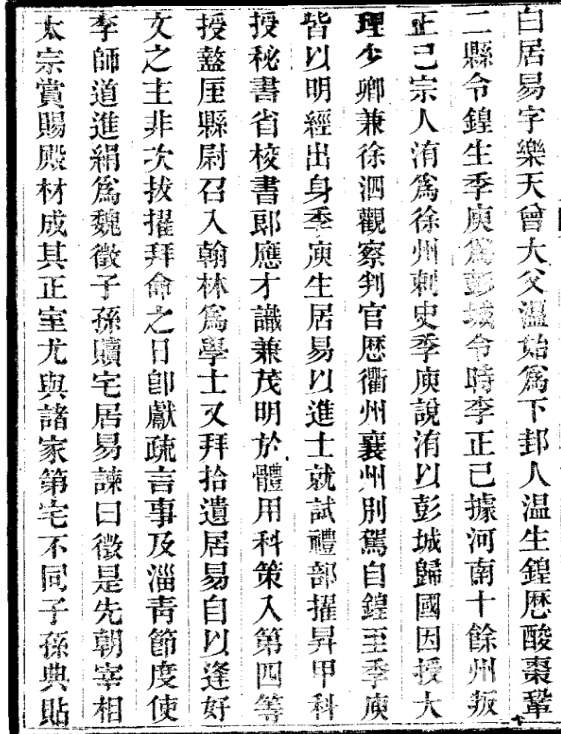 白居易字樂天曾大父温始爲下邽人温生鍠歷酸棗鞏
二縣令鍠生季庾爲彭城令時李正己據河南十餘州叛
正己宗人洧爲徐州刺史季庾說洧以彭城歸國因授大
理少卿兼徐泗觀察判官歷衢州襄州別駕自鍠至季庾
皆以明經出身季庾生居易以進士就試禮部擢昇甲科
授秘書省校書郎應才識兼茂明於體用科策入第四等
授盩厔縣尉召入翰林爲學士又拜拾遺居易自以逢好
文之主非次拔擢拜命之日卽獻疏言事及淄青節度使
李師道進絹爲魏徵子孫贖宅居易諫曰徵是先朝宰相
太宗賞賜殿材成其正室尤與諸家第宅不同子孫典貼